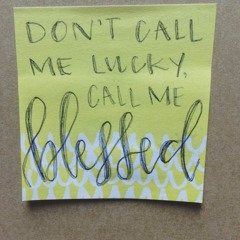 DON'T CALL
ME LUCKY,
CALL ME
blessed